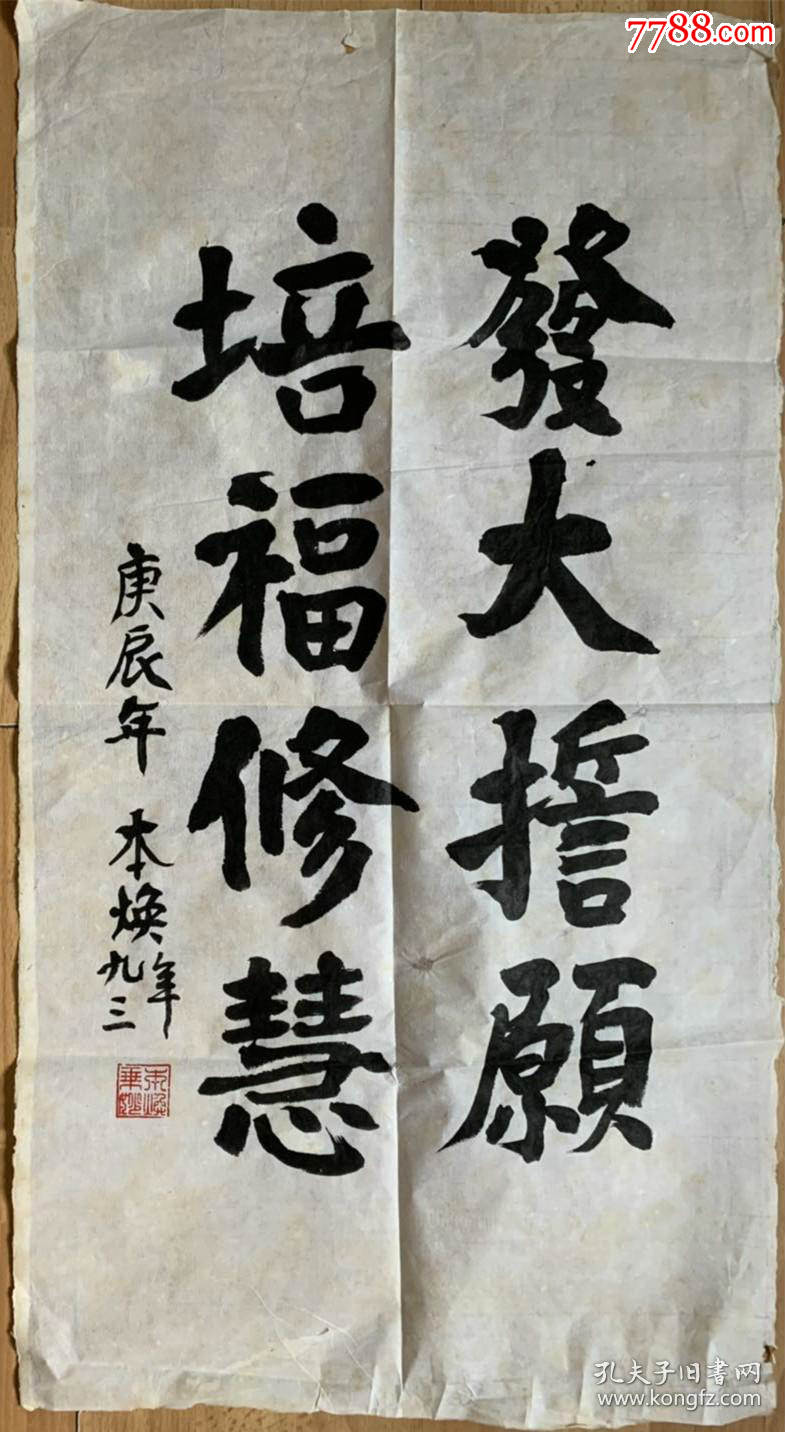 7788.com
發大誓願
培福修慧
庚辰年 本煥年九三
孔夫子旧書网
www.kongfz.com